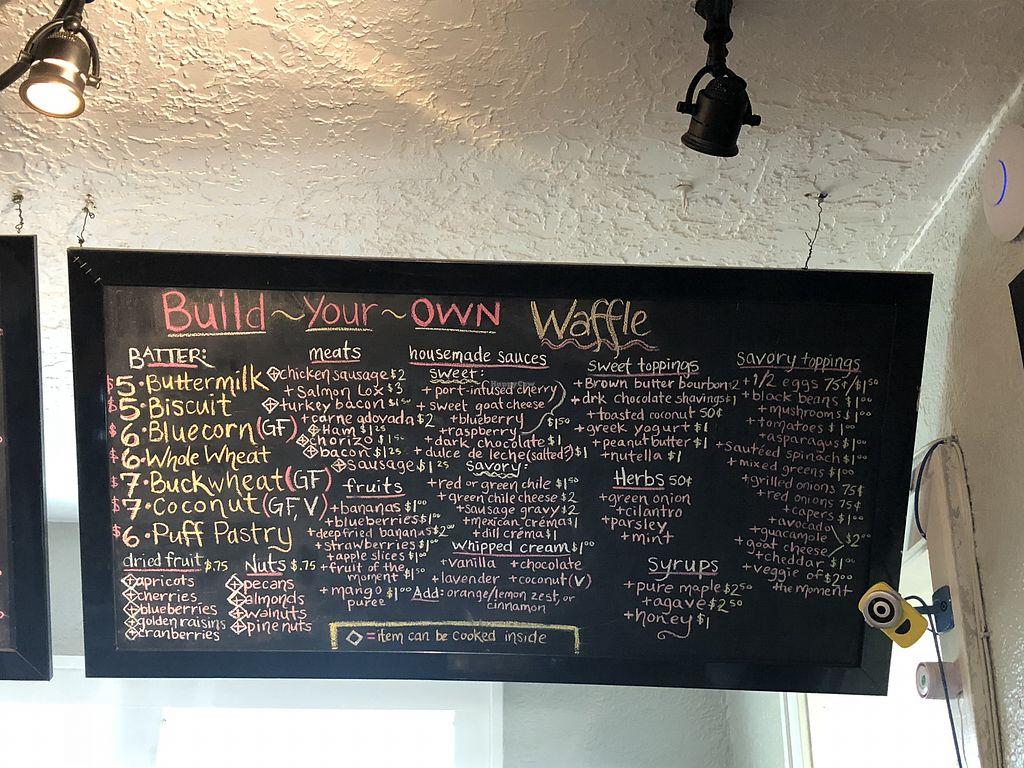 Build ~ Your ~ OWN Waffle
BATTER:
$5 • Buttermilk
$5 • Biscuit
$6 • Bluecorn (GF)
$6 • Whole Wheat
$7 • Buckwheat (GF)
$7 • Coconut (GF, V)
$6 • Puff Pastry
dried fruit $.75
apricots
cherries
blueberries
golden raisins
cranberries
Nuts $.75
pecans
almonds
walnuts
pine nuts
meats
chicken sausage $2
+ Salmon Lox $3
turkey bacon $1.50
+ carne adovada $2
Ham $1.25
chorizo $1.50
bacon $1.25
sausage $1.25
fruits
+ bananas $1.00
+ blueberries $1.00
+ deep fried bananas $2.00
+ strawberries $1.00
+ apple slices $1.00
+ fruit of the
moment $1.50
+ mango $1.00
puree
housemade sauces
sweet:
+ port-infused cherry
+ sweet goat cheese
+ blueberry
+ raspberry
$1.50
+ dark chocolate $1
+ dulce de leche (salted?) $1
Savory:
+ red or green chile $1.50
+ green chile cheese $2
+ sausage gravy $2
+ mexican créma $1
+ dill créma $1
whipped cream $1.00
+ vanilla + chocolate
+ lavender + coconut (V)
Add: orange/lemon zest, or
cinnamon
= item can be cooked inside
Sweet toppings
+ Brown butter bourbon $2
+ drk chocolate shavings $1
+ toasted coconut 50¢
+ greek yogurt $1
+ peanut butter $1
+ nutella $1
Herbs 50¢
+ green onion
+ cilantro
+ parsley
+ mint
Syrups
+ pure maple $2.50
+ agave $2.50
+ honey $1
Savory toppings
+ 1/2 eggs 75¢/$1.50
+ black beans $1.00
+ mushrooms $1.00
+ tomatoes $1.00
+ asparagus $1.00
+ sautéed spinach $1.00
+ mixed greens $1.00
+ grilled onions 75¢
+ red onions 75¢
+ capers $1.00
+ avocado
+ guacamole
+ goat cheese
$2.00
+ cheddar $1.00
+ veggie of $2.00
the moment